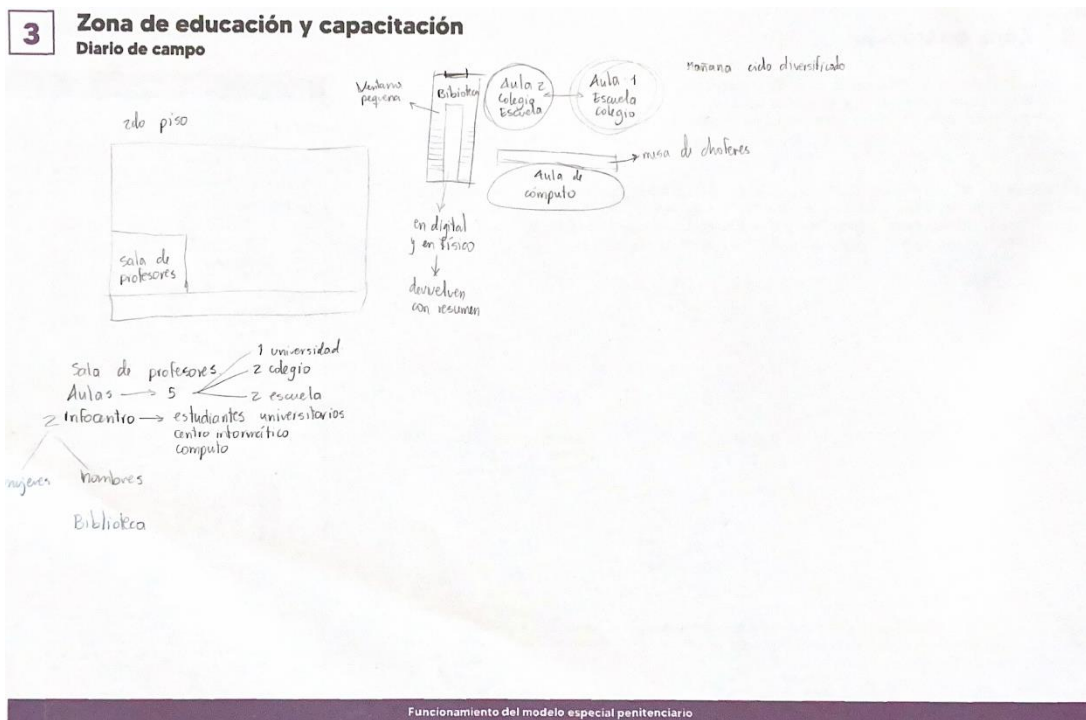 3
Zona de educación y capacitación
Diario de campo
2do piso
sala de
profesores
Ventana
pequeña
Bibioteca
Aula 2
Colegio
Escuela
Aula 1
Escuela
colegio
Mañana ciclo diversificado
mesa de choferes
Aula de
cómputo
en digital
y en físico
devuelven
con resumen
Sala de profesores
Aulas → 5
1 universidad
2 colegio
2 escuela
2 Infocentro → estudiantes universitarios
centro informático
computo
mujeres
hombres
Biblioteca
Funcionamiento del modelo especial penitenciario